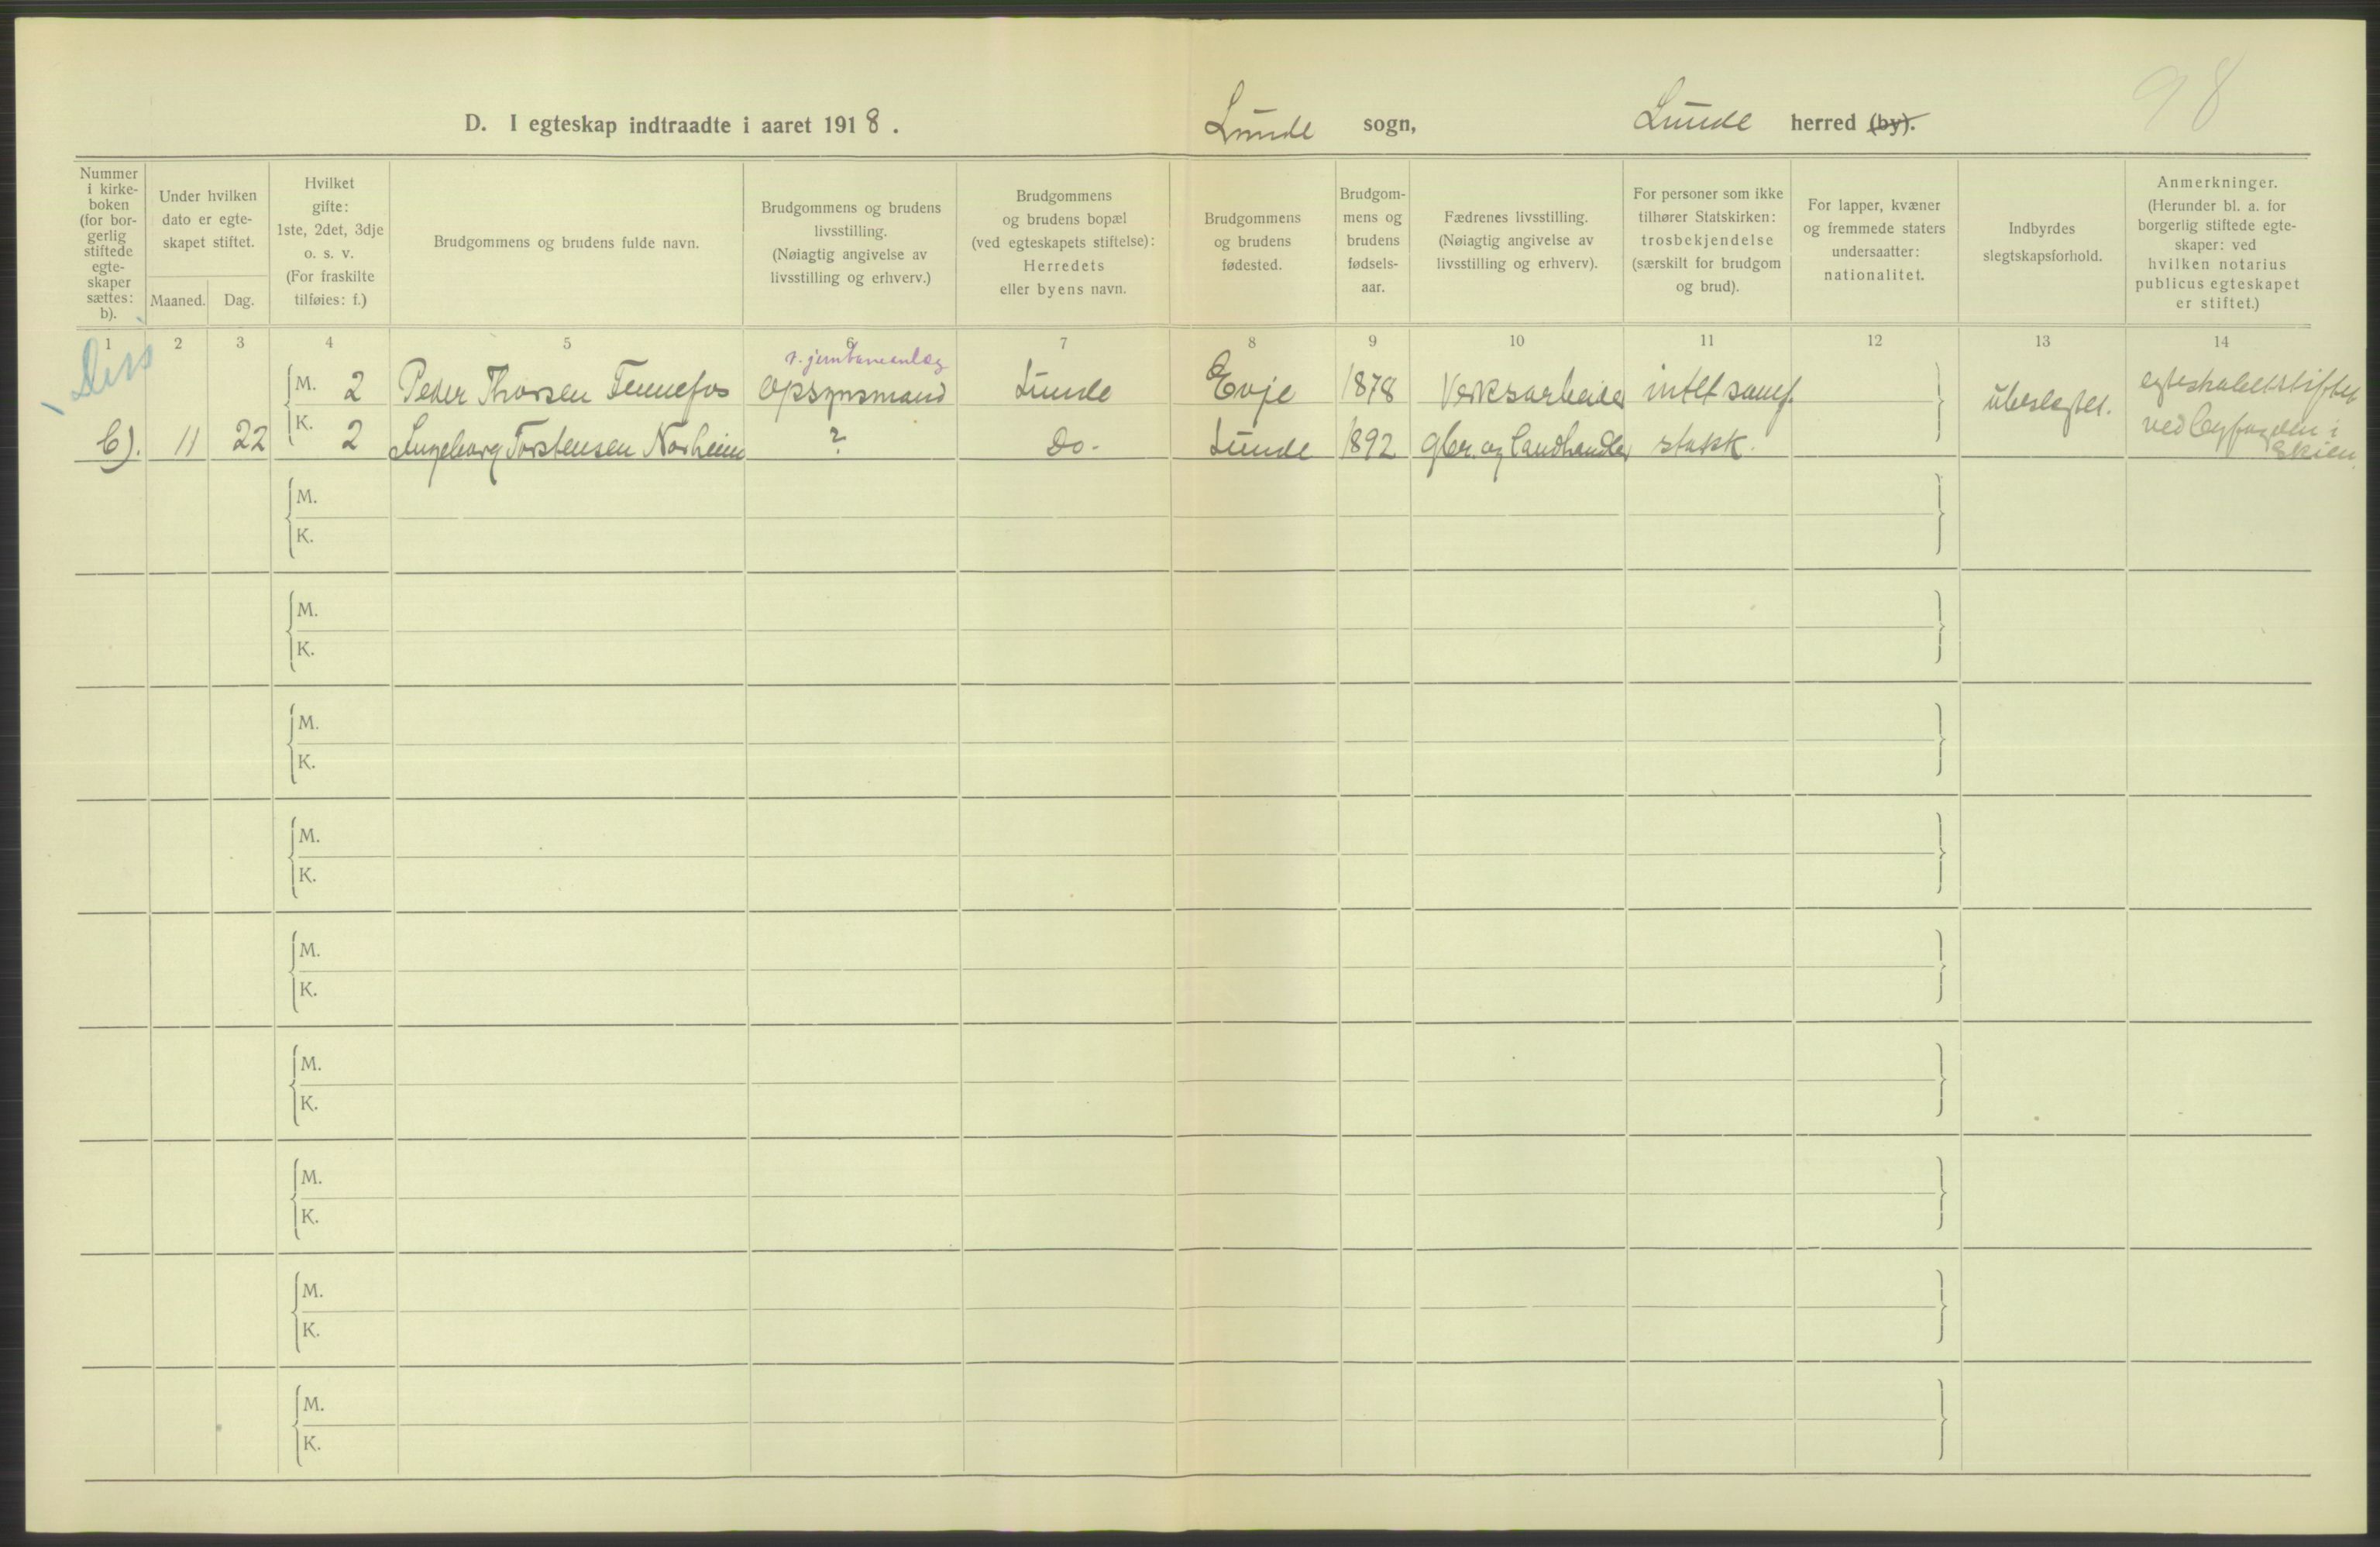 98
D. I egteskap indtraadte i aaret 1918. Lunde sogn, Lunde herred (by).
Nummer i kirke-boken (for bor-gerlig stiftede egte-skaper sættes: b).
Under hvilken dato er egte-skapet stiftet.
Maaned. Dag.
Hvilket gifte: 1ste, 2det, 3dje o. s. v. (For fraskilte tilføies: f.)
Brudgommens og brudens fulde navn.
Brudgommens og brudens livsstilling. (Nøiagtig angivelse av livsstilling og erhverv.)
Brudgommens og brudens bopæl (ved egteskapets stiftelse): Herredets eller byens navn.
Brudgommens og brudens fødested.
Brudgom-mens og brudens fødsels-aar.
Fædrenes livsstilling. (Nøiagtig angivelse av livsstilling og erhverv).
For personer som ikke tilhører Statskirken: trosbekjendelse (særskilt for brudgom og brud).
For lapper, kvæner og fremmede staters undersaatter: nationalitet.
Indbyrdes slegtskapsforhold.
Anmerkninger. (Herunder bl. a. for borgerlig stiftede egte-skaper: ved hvilken notarius publicus egteskapet er stiftet.)
1 2 3 4 5 6 7 8 9 10 11 12 13 14
v. jernbaneanlæg
M. 2 Peder Thorsen Fennefos opsynsmand Lunde Evje 1878 Verksarbeider intet samf. ubeslegtet. egteskabet stiftet
b). 11 22 K. 2 Ingeborg Torstensen Norheim ? do. Lunde 1892 gbr. og landhandler statsk. ved byfogden i
Skien.
M.
K.
M.
K.
M.
K.
M.
K.
M.
K.
M.
K.
M.
K.
M.
K.
M.
K.